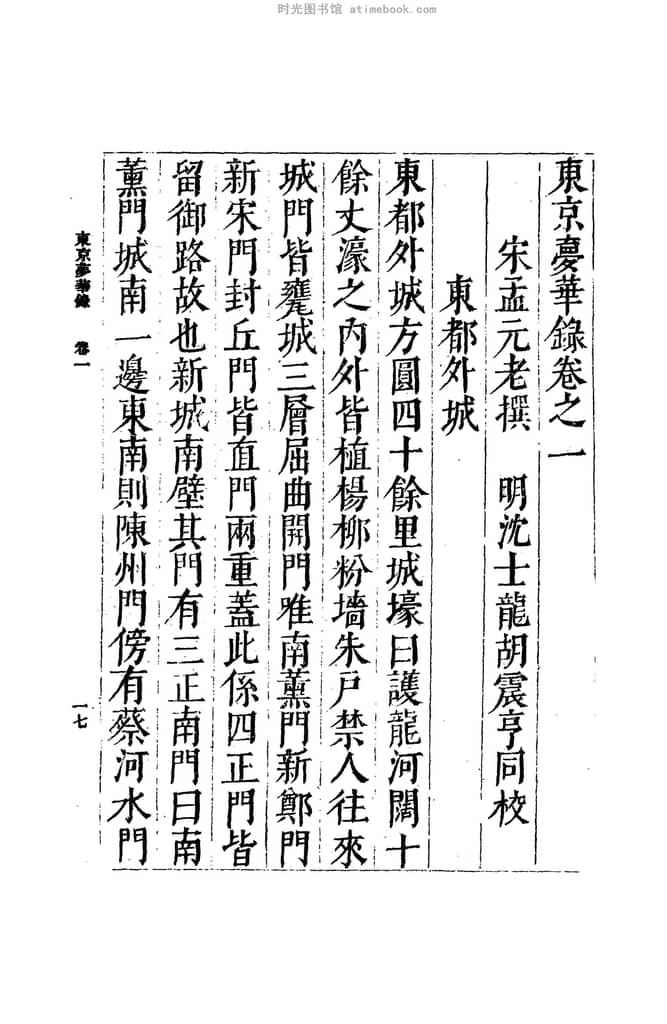 时光图书馆 atimebook.com
東京夢華錄卷之一
宋孟元老撰 明沈士龍胡震亨同校
東都外城
東都外城方圓四十餘里城壕曰護龍河闊十
餘丈濠之内外皆植楊柳粉墻朱戶禁人往來
城門皆甕城三層屈曲開門唯南薰門新鄭門
新宋門封丘門皆直門兩重蓋此係四正門皆
留御路故也新城南壁其門有三正南門曰南
薰門城南一邊東南則陳州門傍有蔡河水門
東京夢華錄 卷一
一七